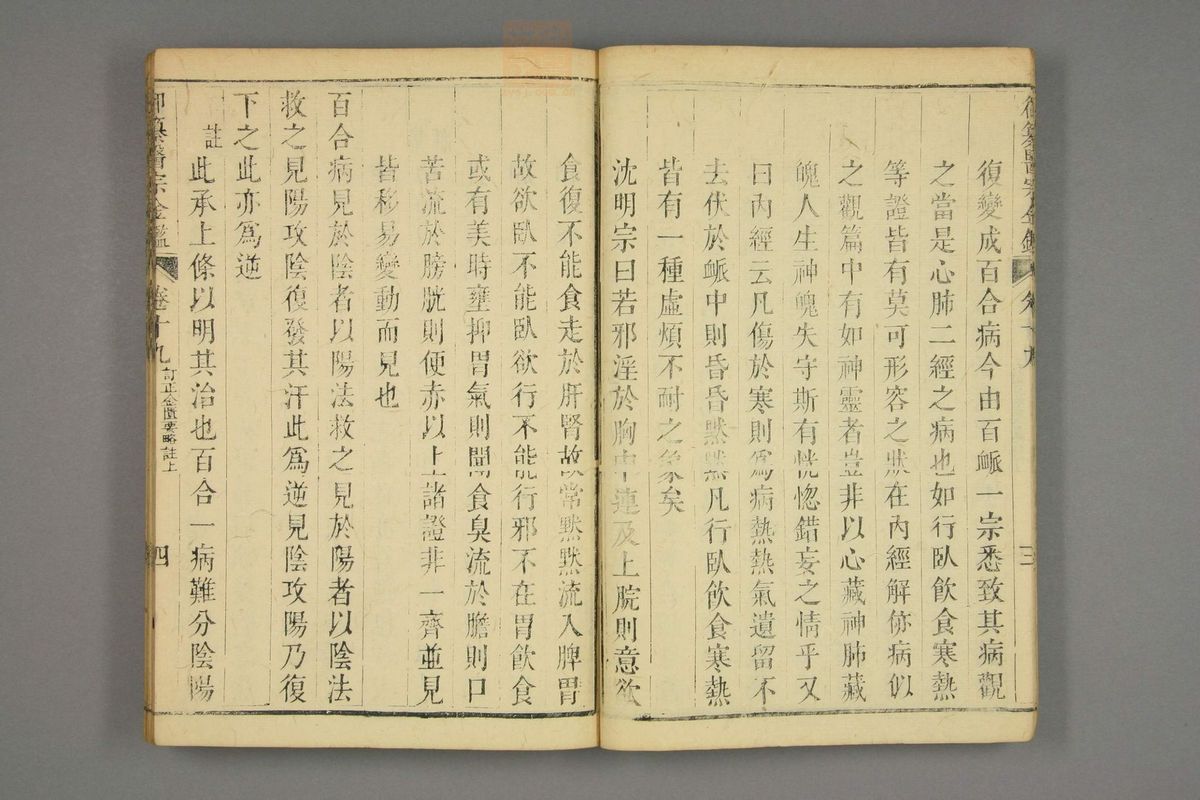 御纂醫宗金鑑 卷十九 三
復變成百合病今由百衇一宗悉致其病觀
之當是心肺二經之病也如行臥飲食寒熱
等證皆有莫可形容之狀在內經解㑊病似
之觀篇中有如神靈者豈非以心藏神肺藏
魄人生神魄失守斯有恍惚錯妄之情乎又
曰內經云凡傷於寒則爲病熱熱氣遺留不
去伏於衇中則昏昏黙黙凡行臥飲食寒熱
皆有一種虛煩不耐之象矣
沈明宗曰若邪淫於胸中連及上脘則意欲
食復不能食走於肝腎故常黙黙流入脾胃
故欲臥不能臥欲行不能行邪不在胃飲食
或有美時壅抑胃氣則聞食臭流於膽則口
苦流於膀胱則便赤以上諸證非一齊並見
皆移易變動而見也
百合病見於陰者以陽法救之見於陽者以陰法
救之見陽攻陰復發其汗此爲逆見陰攻陽乃復
下之此亦爲逆
註 此承上條以明其治也百合一病難分陰陽
御纂醫宗金鑑 卷十九 訂正金匱要略註上 四